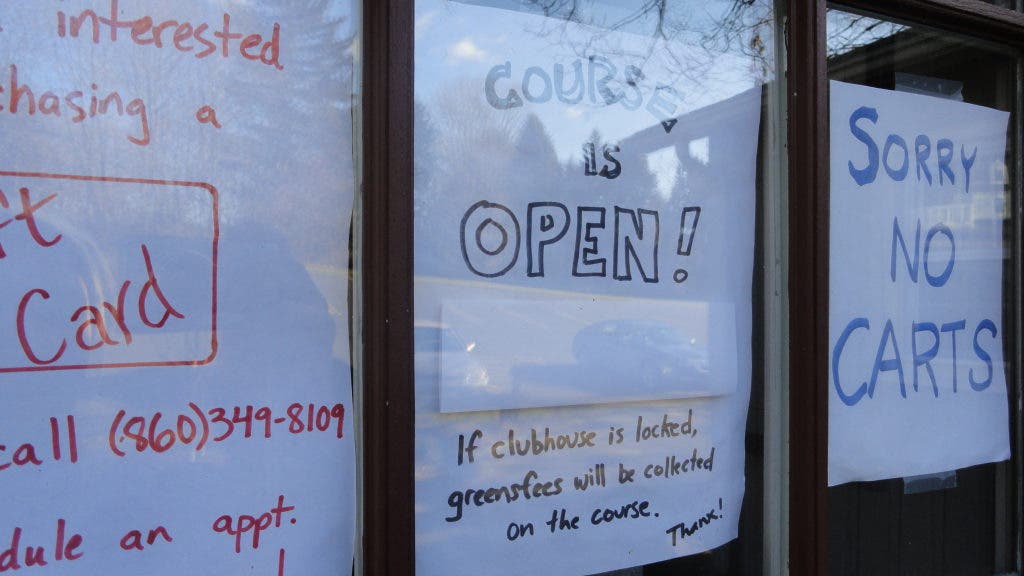 interested
chasing a
ft
Card
call (860)349-8109
dule an appt.
!
COURSE
IS
OPEN!
If clubhouse is locked,
greensfees will be collected
on the course.
Thanx!
SORRY
NO
CARTS